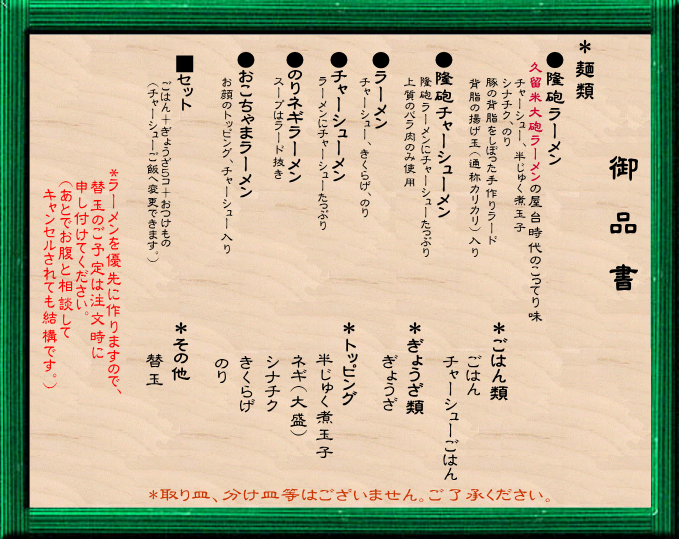 御品書
＊麺類
●隆砲ラーメン
久留米大砲ラーメンの屋台時代のこってり味
チャーシュー、半じゅく煮玉子
シナチク、のり
豚の背脂をしぼった手作りラード
背脂の揚げ玉（通称カリカリ）入り
●隆砲チャーシューメン
隆砲ラーメンにチャーシューたっぷり
上質のバラ肉のみ使用
●ラーメン
チャーシュー、きくらげ、のり
●チャーシューメン
ラーメンにチャーシューたっぷり
●のりネギラーメン
スープはラード抜き
●おこちゃまラーメン
お顔のトッピング、チャーシュー入り
■セット
ごはん＋ぎょうざ5コ＋おつけもの
（チャーシューご飯へ変更できます。）
＊ごはん類
ごはん
チャーシューごはん
＊ぎょうざ類
ぎょうざ
＊トッピング
半じゅく煮玉子
ネギ（大盛）
シナチク
きくらげ
のり
＊その他
替玉
＊ラーメンを優先に作りますので、
替玉のご予定は注文時に
申し付けてください。
（あとでお腹と相談して
キャンセルされても結構です。）
＊取り皿、分け皿等はございません。ご了承ください。